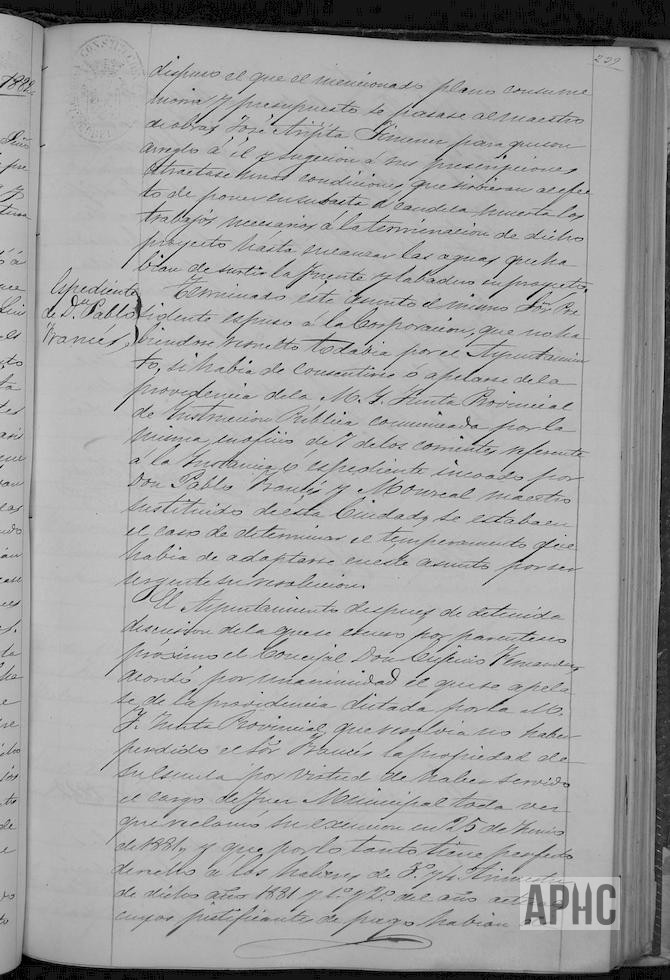 229
dispuso el que el mencionado plano con su me
moria y presupuesto se pasase al maestro
de obras José Arpita Jimenez para que con
arreglo á él y sugecion á sus prescripciones
estractase unas condiciones que sirbieran al efec
to de poner en subasta á candela muerta los
trabajos necesarios á la terminacion de dicho
proyecto hasta encauzar las aguas que ha
bian de surtir la fuente y labadero en proyecto
Espediente
de Dn. Pablo
Francés,
Terminado este asunto el mismo Sor. Pre
sidente espuso á la Corporacion, que no ha
biendose resuelto todabia por el Ayuntamien
to, si habia de consentirse ó apelarse de la
providencia de la M. I. Junta Provincial
de Instruccion Pública comunicada por la
misma en oficio de 7 de los corrientes referente
á la Instancia ó espediente incoado por
Don Pablo Francés y Monreal maestro
sustituido de esta Ciudad, se estaba en
el caso de determinar el temperamento que
habia de adaptarse en este asunto por ser
urgente su resolucion.
El Ayuntamiento despues de detenida
discusion de la que se escusó por parentesco
proximo el Concejal Don Fernandez
acordó por unanimidad el que se apela
se de la providencia dictada por la M.
I. Junta Provincial, que resolvia no haber
perdido el Sor. Francés la propiedad de
su Escuela por virtud de haber servido
el cargo de Juez Municipal toda vez
que reclamó su exencion en 25 de Junio
de 1881, y que por lo tanto tiene perfecto
derecho á los haberes de 3º y 4º trimestre
de dicho año 1881 y 1º y 2º del año
cuyos justificantes de pago habian
APHC